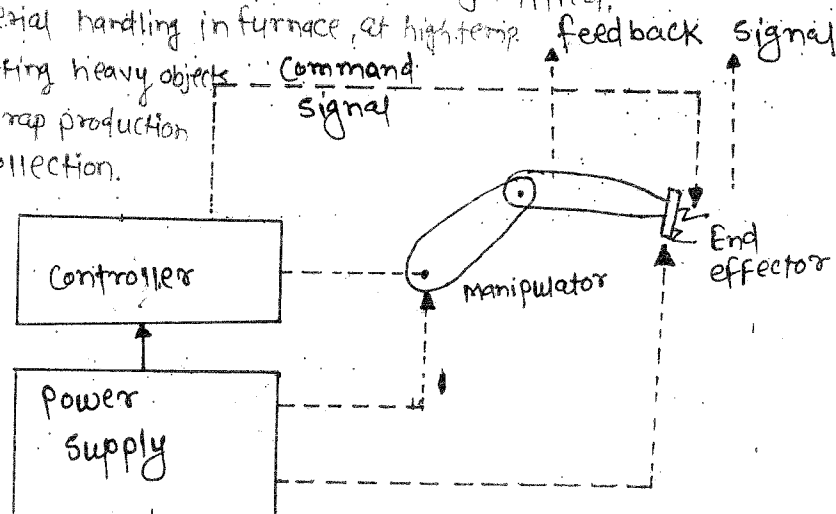 handling in furnace, at high temp.
heavy objects
production
feedback signal
Command
signal
Controller
manipulator
End
effector
Power
Supply